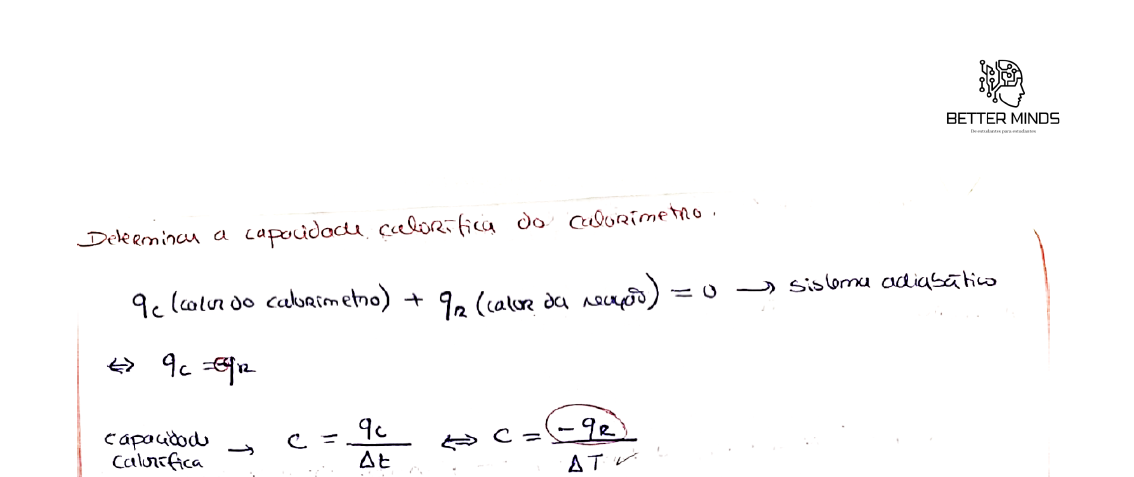 BETTER MINDS
De estudantes para estudantes
Determinar a capacidade calorífica do calorímetro.
qc (calor do calorímetro) + qR (calor da reação) = 0 → sistema adiabático
⇔ qc = -qR
capacidade calorífica → C = qc/Δt ⇔ C = -qR/ΔT ✓